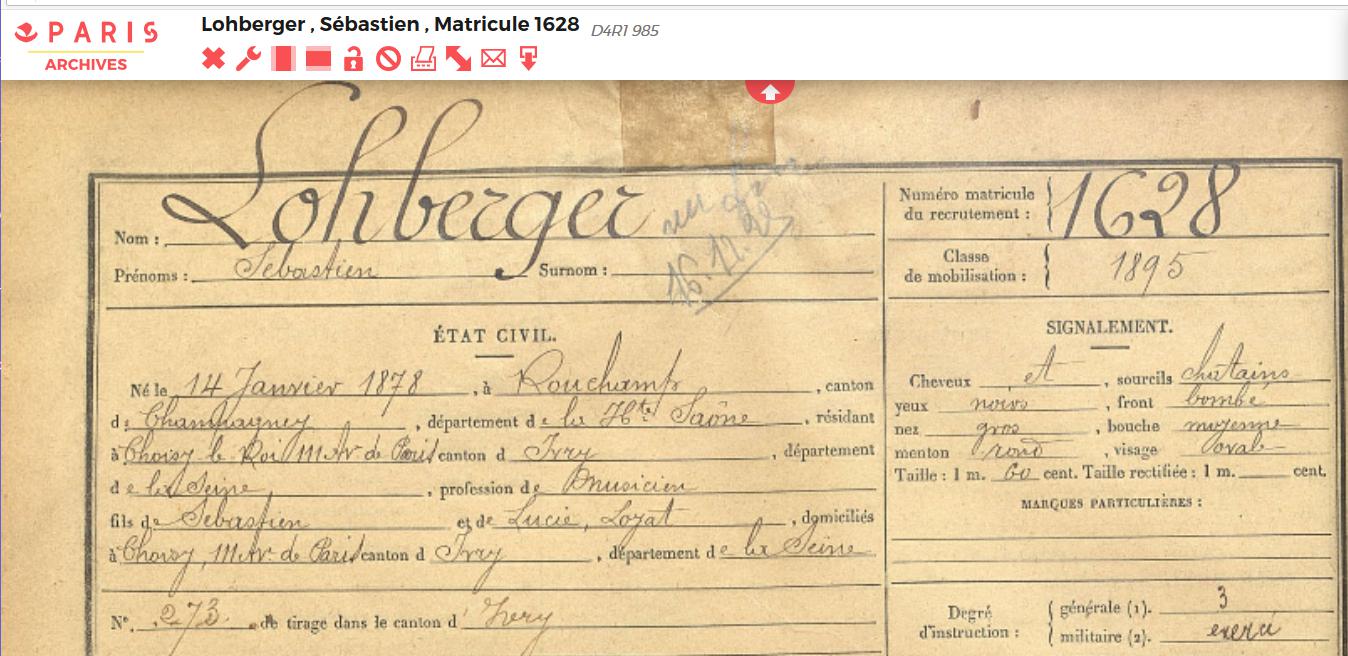 PARIS
ARCHIVES
Lohberger , Sébastien , Matricule 1628 D4R1 985
Lohberger
Nom :
Prénoms : Sébastien Surnom :
16.12.
Numéro matricule du recrutement : 1628
Classe de mobilisation : 1895
ÉTAT CIVIL.
Né le 14 Janvier 1878, à Ronchamp, canton
de Champagney, département de la Hte Saône, résidant
à Choisy le Roi 111 Av de Paris canton d Ivry, département
de la Seine, profession de musicien
fils de Sébastien et de Lucie, Loyat, domiciliés
à Choisy, 111 Av. de Paris canton d Ivry, département de la Seine
N°. 273 de tirage dans le canton d' Ivry
SIGNALEMENT.
Cheveux et, sourcils chatains
yeux noirs, front bombé
nez gros, bouche moyenne
menton rond, visage ovale
Taille : 1 m. 60 cent. Taille rectifiée : 1 m. cent.
MARQUES PARTICULIÈRES :
Degré d'instruction : générale (1). 3
militaire (2). exercé